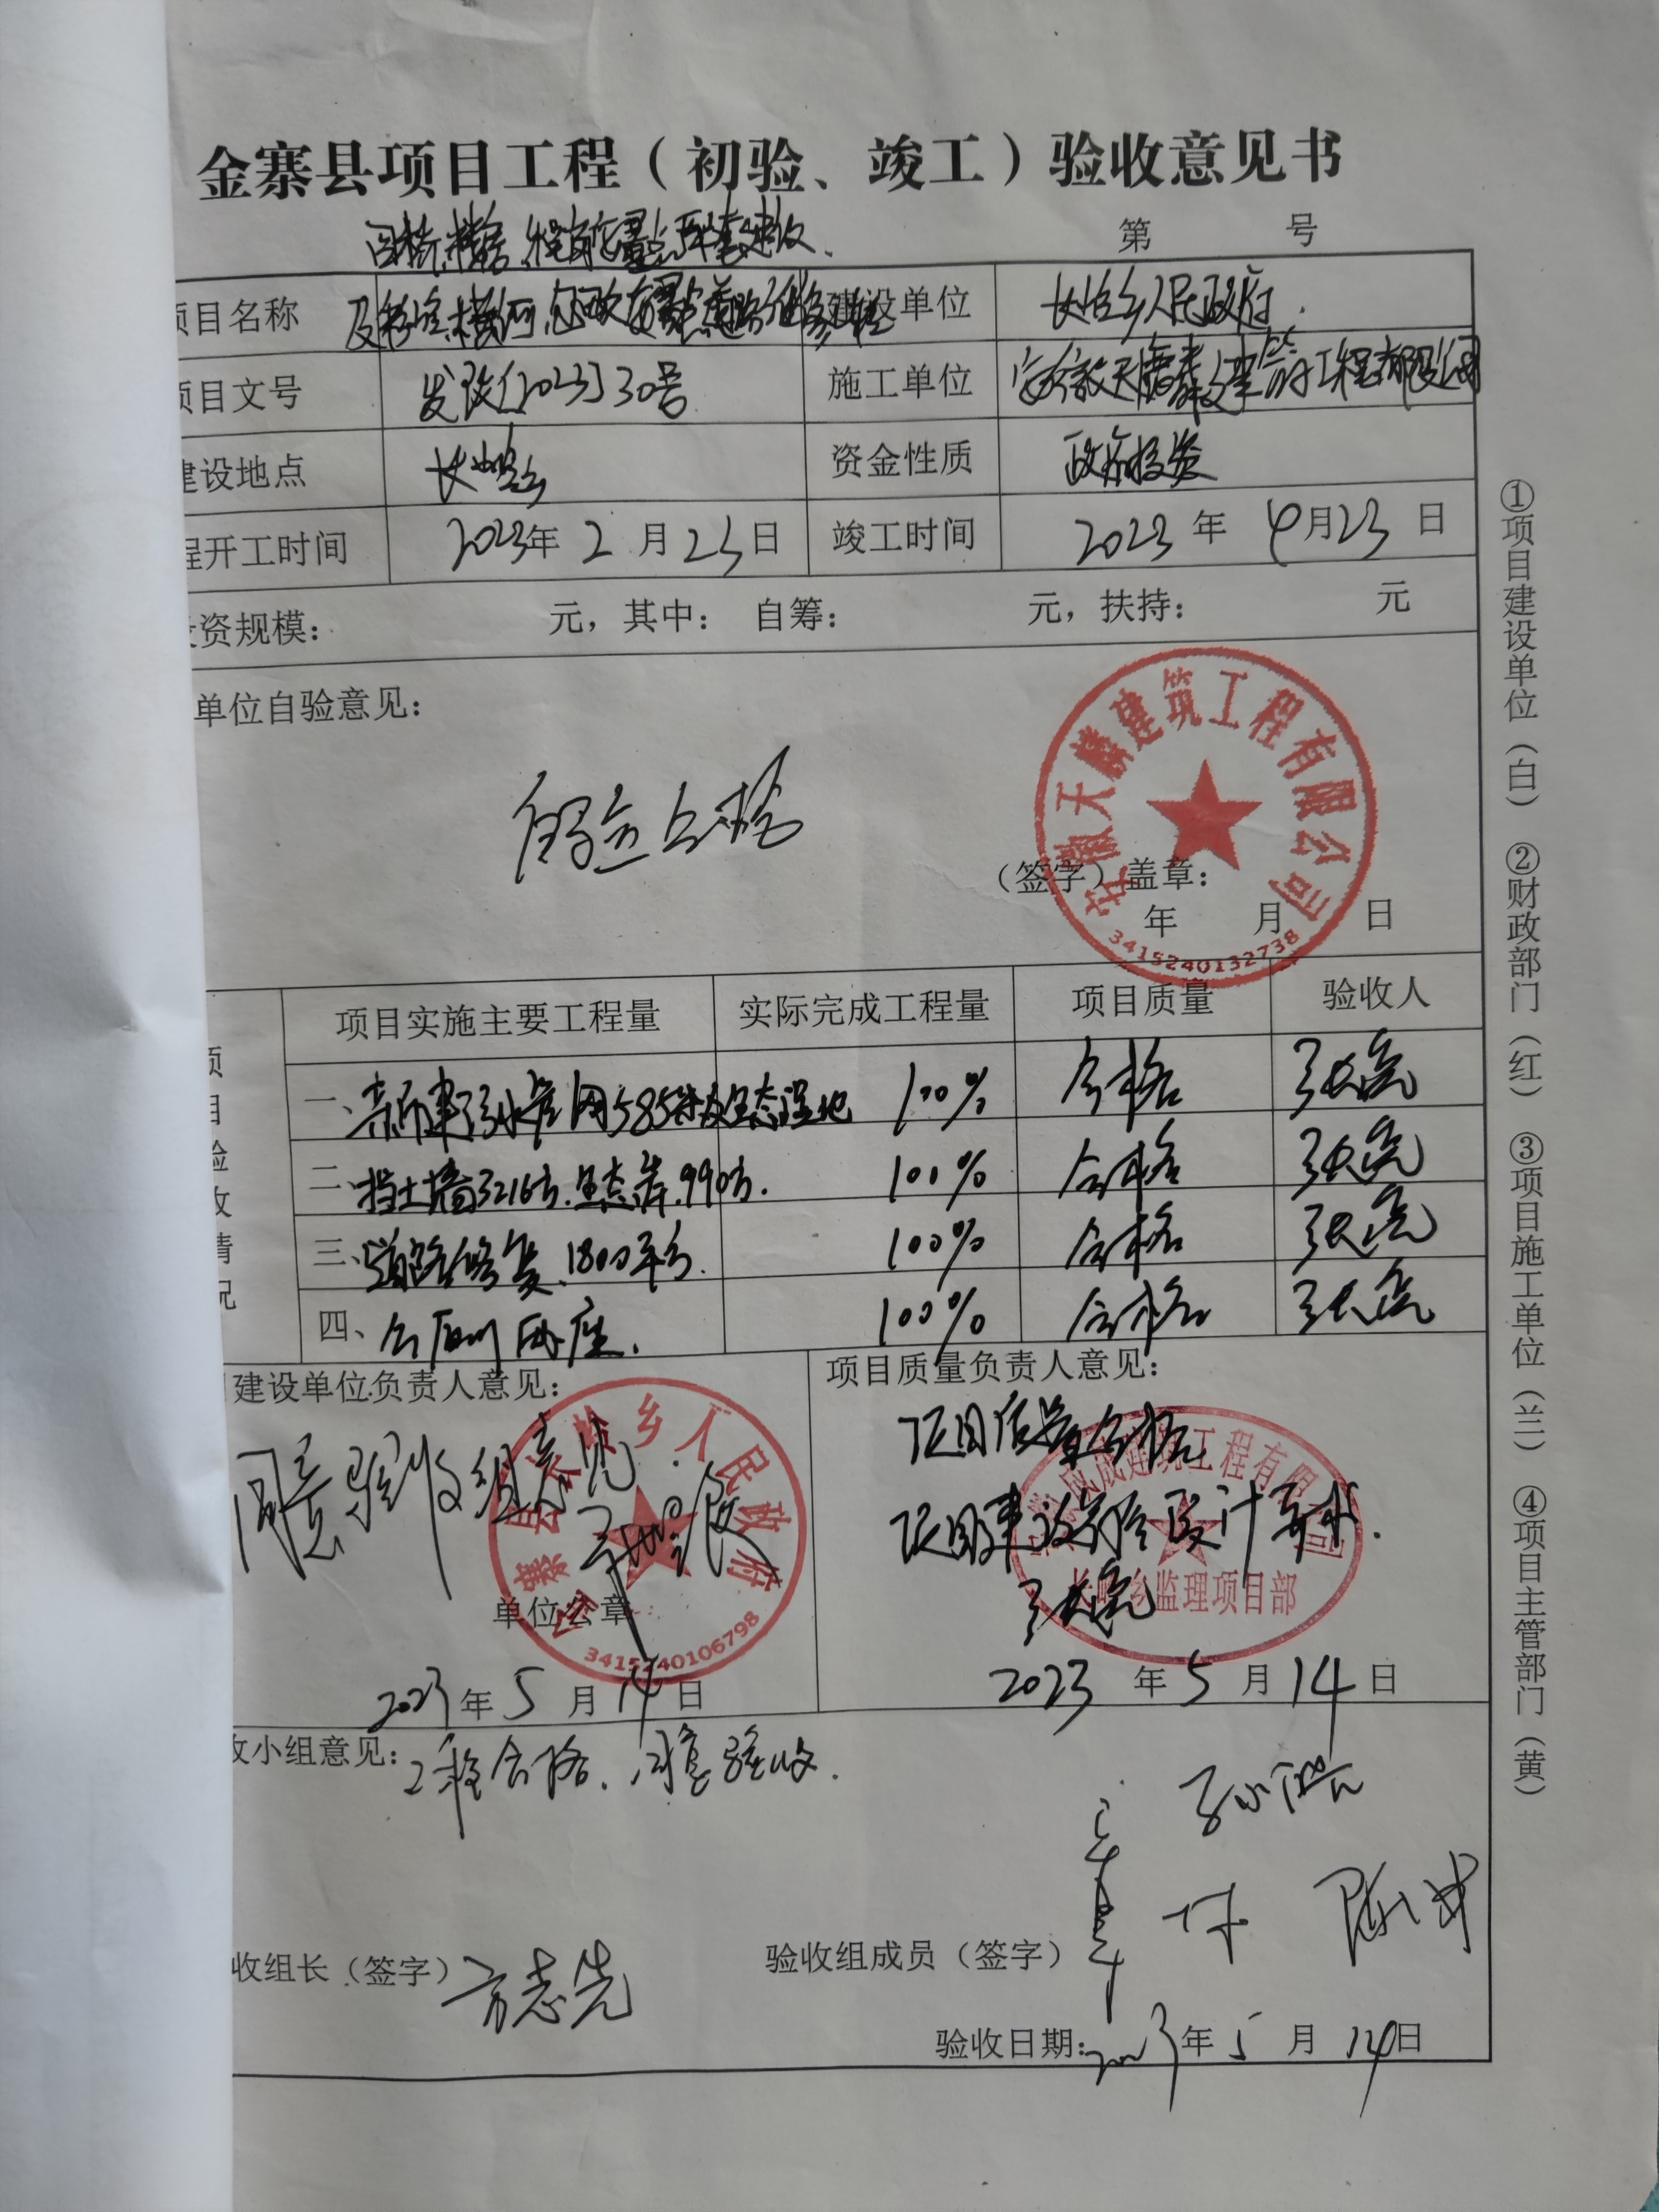 金寨县项目工程（初验、竣工）验收意见书
第 号
项目名称 建设单位 长岭乡人民政府
项目文号 发改[2023]30号 施工单位 安徽天麟建筑工程有限公司
建设地点 长岭乡 资金性质 政府投资
程开工时间 2023年 2 月 23 日 竣工时间 2023 年 4月23 日
资规模： 元，其中： 自筹： 元，扶持： 元
单位自验意见：
自验合格
（签字）盖章：
年 月 日
安徽天麟建筑工程有限公司
3415240132738
项目验收情况
项目实施主要工程量 实际完成工程量 项目质量 验收人
一、 管网585米及生态湿地 100% 合格 张亮
二、挡土墙3216方.生态岸.990方. 100% 合格 张亮
三、道路修复.1800平方. 100% 合格 张亮
四、公厕 座. 100% 合格 张亮
建设单位负责人意见：
同意验收组意见.
单位公章
金寨县长岭乡人民政府
3415240106798
2023年 5 月 14 日
项目质量负责人意见：
项目质量合格
项目建设符合设计要求.
张亮
建筑工程有限公司
长岭乡监理项目部
2023 年 5 月 14 日
收小组意见：工程合格.同意验收.
收组长（签字）方志先
验收组成员（签字）
验收日期：2023年 5 月 14日
①项目建设单位（白） ②财政部门（红） ③项目施工单位（兰） ④项目主管部门（黄）